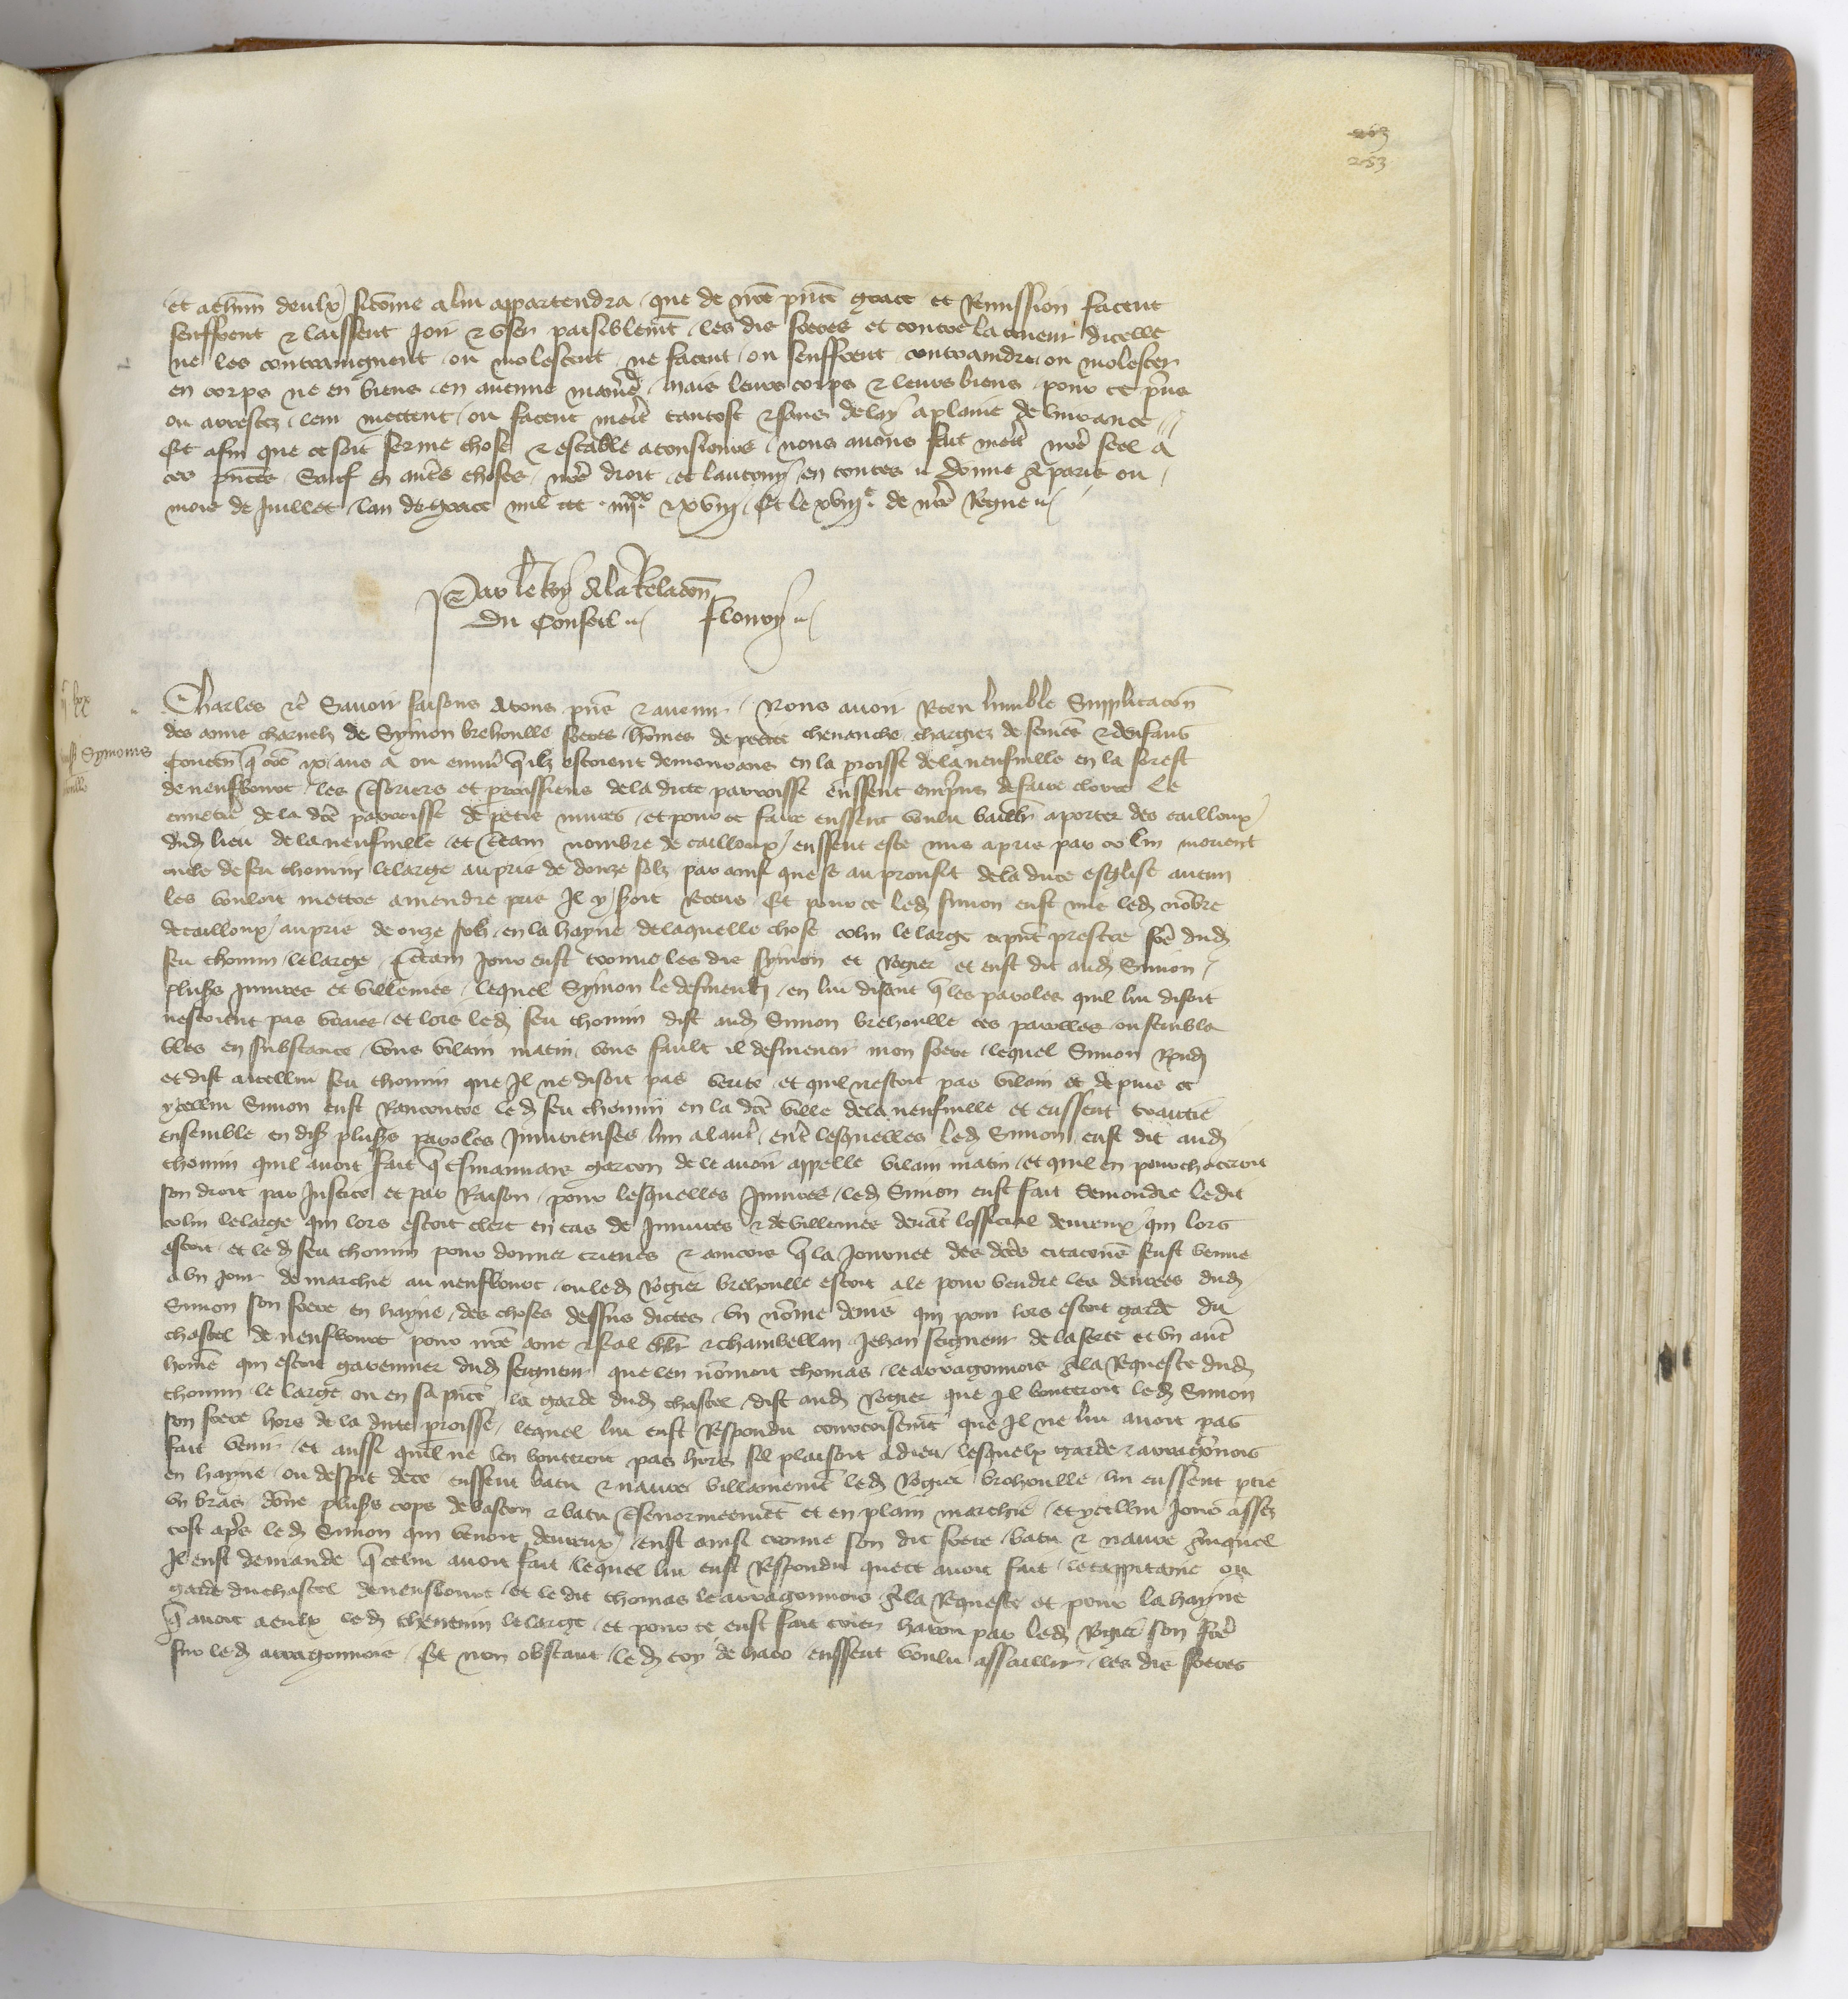 263
253
et a chūn deulx sicōme a lui appartendra que de nrē pñte grace et Remission facent
seuffrent & laissent joir & user paisiblemt les dis freres et contre la teneur dicelle
ne les contraingnent ou molestent ne facent ou seuffrent contraindre ou molester
en corps ne en biens en aucune maniē mais leurs corps & leurs biens pour ce prins
ou arrestez leur mettent ou facent mettrē tantost & sans delay a plaine delivrance
Et afin que ce soit ferme chose & estable a tousiours nous avons fait mettrē nrē seel a
ces pñtes Sauf en autrēs choses nrē droit et lautruy en toutes Donne a paris ou
mois de Juillet lan de grace mil ccc iiijxx & xviij Et le xviije de nrē Regne
Par le Roy a la Relacōn
du Conseil Floury
Charles etc Savoir faisons a tous pñs & avenir Nous avoir Receu lumble Supplicacōn
des amis charnelz de Symon brehoulle freres hōmes de petite chevance chargiez de femēs & denfans
Contenāt que cōme ix ans a ou environ quilz estoient demourans en la paroisse de la neufville en la forest
Symonis
de neufbourc les tresoriers et parroissiens de la dicte parroisse eussent empris de faire clorre le
cimetiē de la dcē parroisse de petis murs et pour ce faire eussent voulu baillier a porter des cailloux
dud lieu de la neufville et certain nombre de cailloux eussent este mis a pris par colin
de feu thomin lelarge au pris de douze solz par ainsi que se au proufit de la dicte esglise aucun
les vouloit mettre a mendre pris Il y soit Receus Et pour ce led simon eust mis led nōbre
de cailloux au pris de onze solz en la hayne de laquelle chose colin le large a pñt prestre frē dud
feu thomin lelarge certain jour eust trouve les dis Symon et Rogier et eust dit aud Simon
plusrs Injures et villenies lequel Symon le desmenti en lui disant que les paroles quil lui disoit
nestoient pas vraies et lors led feu thomin dist aud Simon brehoulle ces parolles ou sembla
bles en substance vous vilain matin vous fault il desmentir mon frere lequel Simon Rpnd
et dist a icellui feu thomin que Il ne disoit pas verite et quil nestoit pas vilain et depuis ce
ycellui Simon eust Rancontre led feu thomin en la dcē ville de la neufville et eussent traictie
ensemble en dist plusrs paroles Injurieuses lun a lautrē entrē lesquelles led Simon eust dit aud
thomin quil avoit fait que mauvais garcon de le avoir appelle vilain matin et quil en pourchaceroit
son droit par Justice et par Raison pour lesquelles Injures led Simon eust fait semondre ledit
colin lelarge qui lors estoit clerc en cas de Injures & de villenies devāt lofficial devreux qui lors
estoit et led feu thomin pour donner trieves & aincois que la Journee des dcēs citacōns feust venue
a un jour de marchie au neufbourc ou led Rogier brehoulle estoit ale pour vendre les denrees dud
Simon son frere en hayne des choses dessus dictes un nōme denis qui pour lors estoit garde du
chastel de neufbourc pour nrē ame & feal chlr & chambellan Jehan seigneur de la ferte et un autrē
homē qui estoit garennier dud seigneur que len nōmoit thomas le arragonnois a la Requeste dud
thomin le large ou en sa pñce la garde dud chastel dist aud Rogier que Il bouteroit led Simon
son frere hors de la dicte paroisse lequel lui eust Respondu courtoisemt que Il ne lui avoit pas
fait venir et aussi quil ne len bouteroit pas hors sil plaisoit a dieu lesquelx garde & arragonnois
en hayne ou despit de ce eussent batu & navre villainemēt led Rogier brehoulle lui eussent
un bras dōne plusrs cops de baston & batu tresenormeemēt et en plain marchie et ycellui jour asses
tost aprēs led Simon qui venoit devreux eust ainsi trouve son dit frere batu & navre auquel
Il eust demande que celui avoit fait lequel lui eust Respondu que ce avoit fait le cappitaine ou
garde du chastel de neufbourc et le dit thomas le arragonnois a la Requeste et pour la hayne
que avoit a eulx led thomin lelarge et pour ce eust fait crier harou par led Rogier son frē
sur led arragonnois Et non obstant led cry de haro eussent voulu assaillir les dis freres